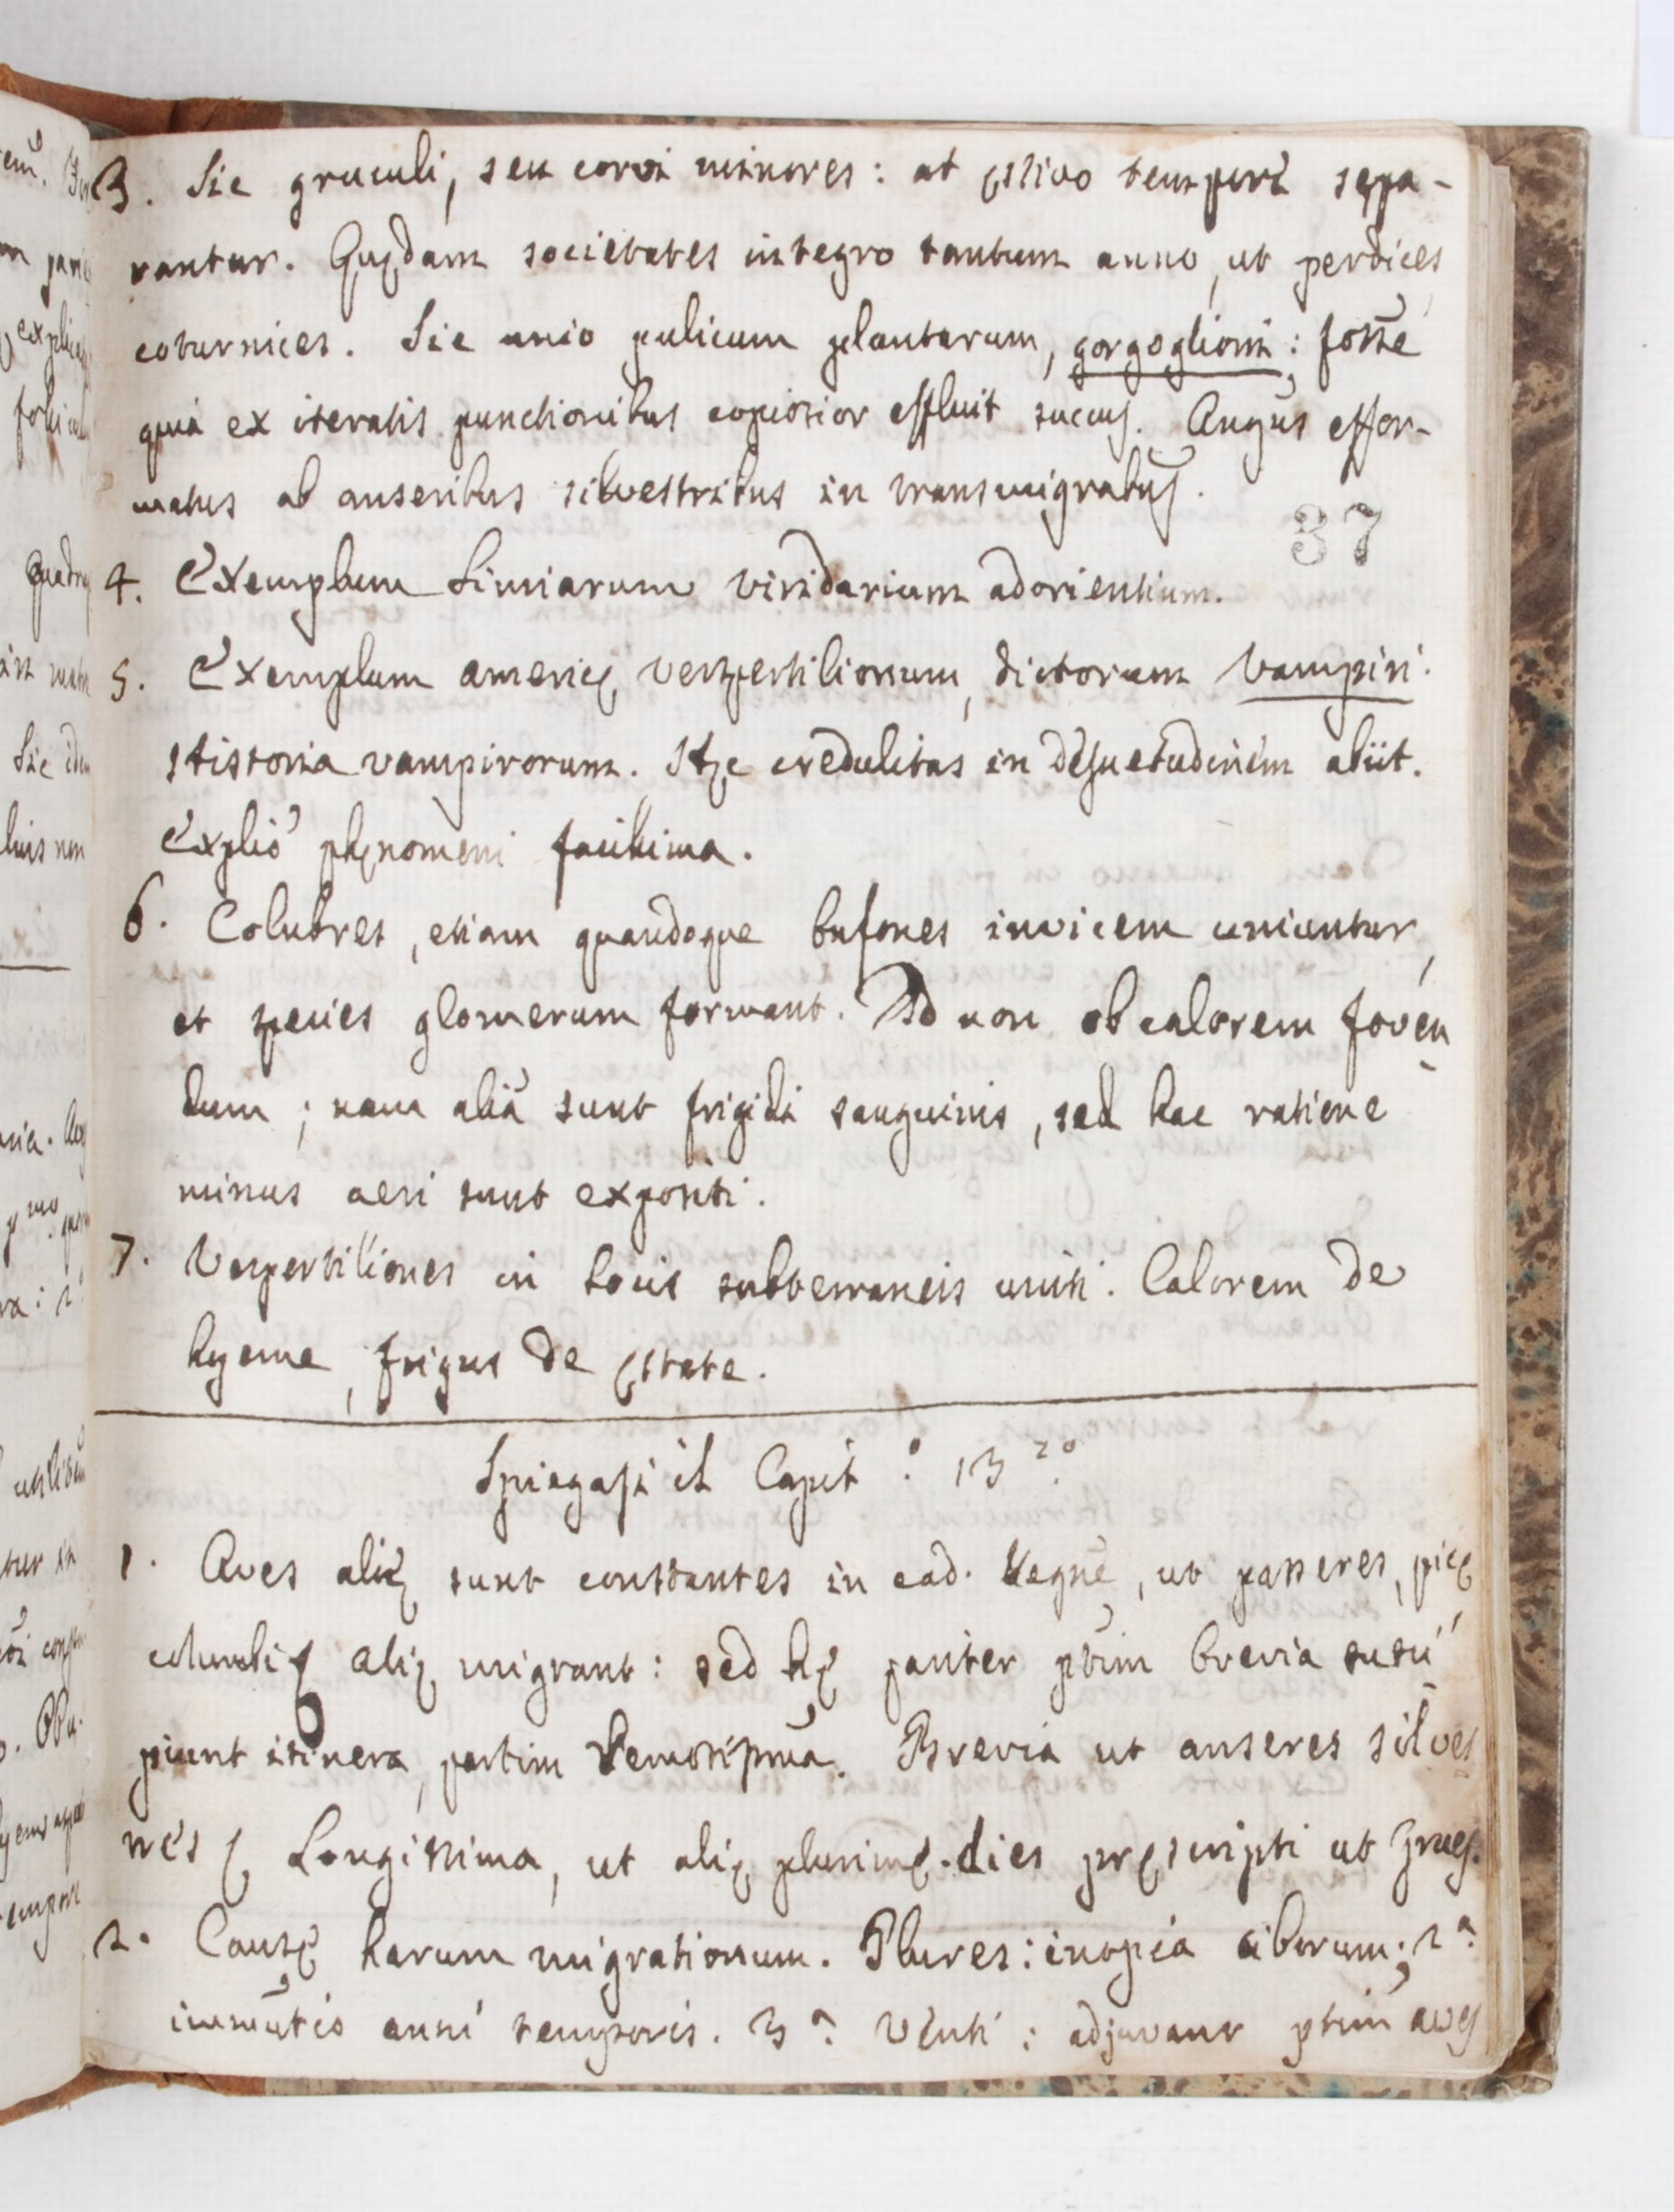 3. Sic gruculi, seu corvi minores: at ęstivo tempore sepa-
rantur. Quędam societates integro tantum anno, ut perdices,
coturnices. Sic unio pulicum plantarum, gorgoglioni: forsse
quia ex iteratis punctionibus copiosior effluit succus. Angus effor-
matus ab anseribus silvestribus in transmigratus.
37
4. Exemplum Simiarum viridarium adorientium.
5. Exemplum americę vespertilionum, dictorum Vampiri.
Historia vampirorum. Hęc credulitas in desuetudinem abiit.
Explio phęnomeni facillima.
6. Colubres, etiam quandoque bufones invicem uniuntur,
et species glomerum formant. Id non ob calorem foven
dum; nam alia sunt frigidi sanguinis, sed hac ratione
minus aeri sunt expositi.
7. Vespertiliones in locis subterraneis uniti. Calorem de
hyeme, frigus de ęstate.
Spiegasi il Capit.° 13.°
1. Aves alię sunt constantes in ead. Regne, ut passeres, picę
columbę alię migrant: sed hę pariter ptim brevia susci
piunt itinera, partim remotissima. Brevia ut anseres silves
tres Longissima, ut alię plurimę dies pręscripti ut grues.
2. Causę harum migrationum. Plures: inopia ciborum; 2ª
immutio anni temporis. 3ª Venti: adjuvant ptim aves